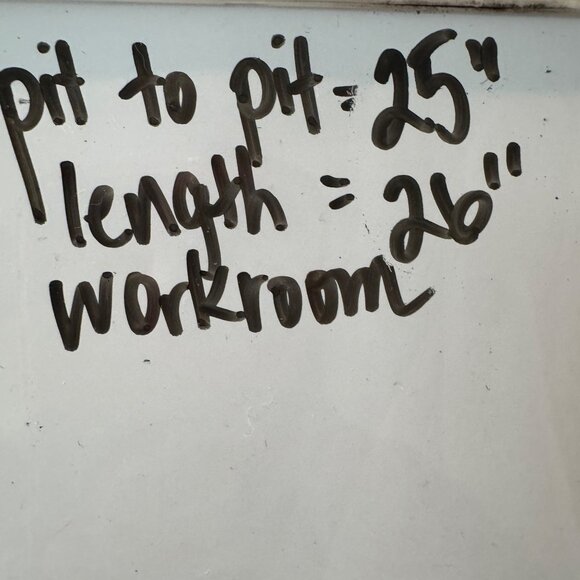 pit to pit = 25"
length = 26"
workroom